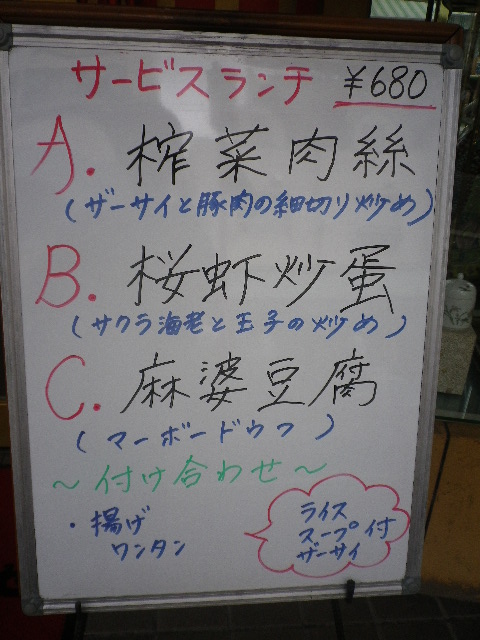 サービスランチ ¥680
A. 榨菜肉絲
(ザーサイと豚肉の細切り炒め)
B. 桜虾炒蛋
(サクラ海老と玉子の炒め)
C. 麻婆豆腐
(マーボードウフ)
~付け合わせ~
・揚げ
ワンタン
ライス
スープ付
ザーサイ